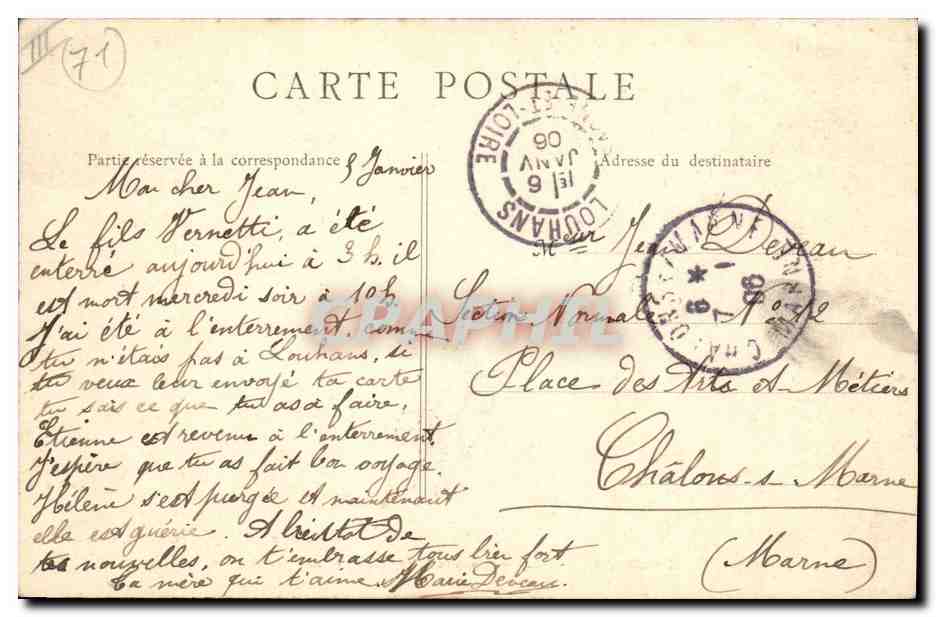 III
71
CARTE POSTALE
Partie réservée à la correspondance
Adresse du destinataire
LOUHANS
ET-LOIRE
6
JANV
06
5 Janvier
Mon cher Jean,
Le fils Vernetti, a été
enterré aujourd'hui à 3 h. il
est mort mercredi soir à 10h.
J'ai été à l'enterrement, comme
tu n'étais pas à Louhans, si
tu veux leur envoyé ta carte
tu sais ce que tu as à faire,
Etienne est revenu à l'enterrement.
J'espère que tu as fait bon voyage.
Hélène s'est purgée et maintenant
elle est guérie. A bientôt de
tes nouvelles, on t'embrasse tous bien fort
ta mère qui t'aime Marie Deveau.
Mr Jean Deveau
Section Normale N° 12
Place des Arts et Métiers
Châlons-s-Marne
(Marne)
MARNE
6 *
7 - 1
06
CPAPHIL